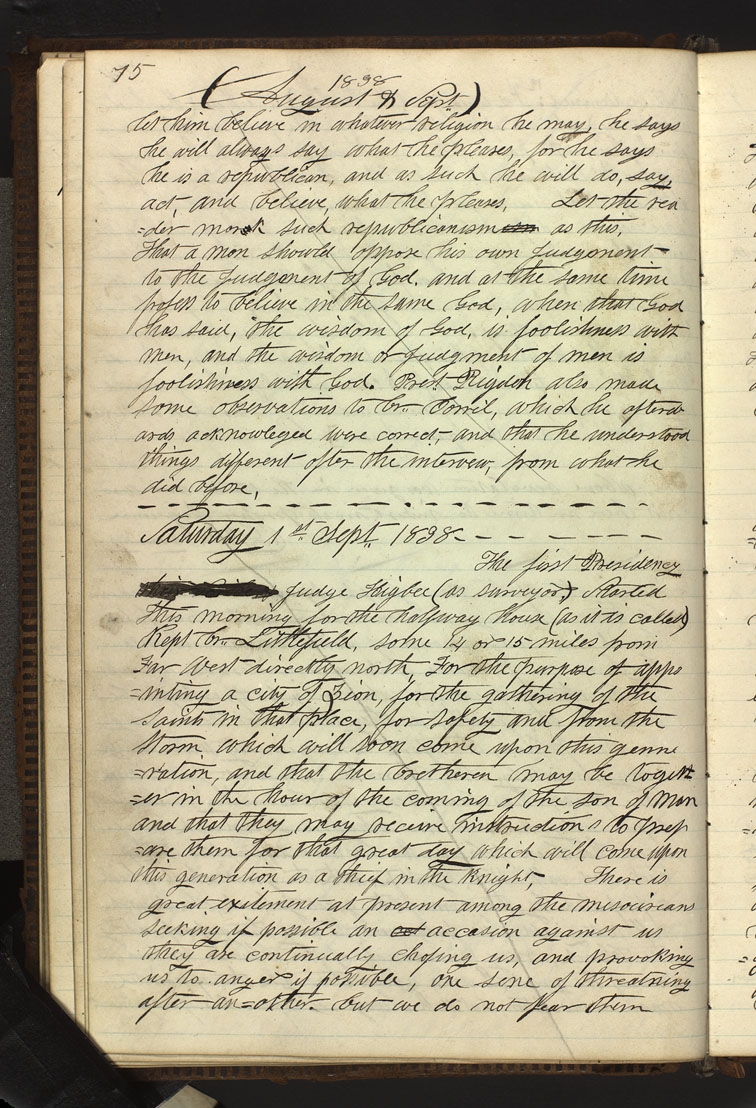 75
1838
(August & Sept)
let him believe in whatever religion he may, he says
he will always say what he pleases, for he says
he is a republican, and as such he will do, say,
act, and believe, what he pleases. Let the rea
=der mark such republicanism as this,
That a man should oppose his own judgement
to the judgement of God, and at the same time
profess to believe in the same God, when that God
has said, the wisdom of God, is foolishness with
men, and the wisdom or judgment of men is
foolishness with God. Prest Rigdon also made
some observations to br. Corril, which he afterw
ards acknowleged were correct, and that he understood
things different after the interview, from what he
did before,
Saturday 1st Sept. 1838
The first Presidency
judge Higbee (as surveyor) Started
This morning for the halfway house (as it is called)
Kept br. Littlefield, some 14 or 15 miles from
Far West directly north, For the purpose of appo
=inting a city of Zion, for the gathering of the
saints in that place, for safety and from the
storm which will soon come upon this genne
=ration, and that the bretheren may be togeth
=er in the hour of the coming of the son of man
and that they may receive instructions to prep
=are them for that great day which will come upon
this generation as a thief in the Knight, There is
great exitement at present among the missourians
seeking if possible an accasion against us
they are continually chafing us, and provoking
us to anger if possible, one sene of threatning
after an=other. but we do not fear them